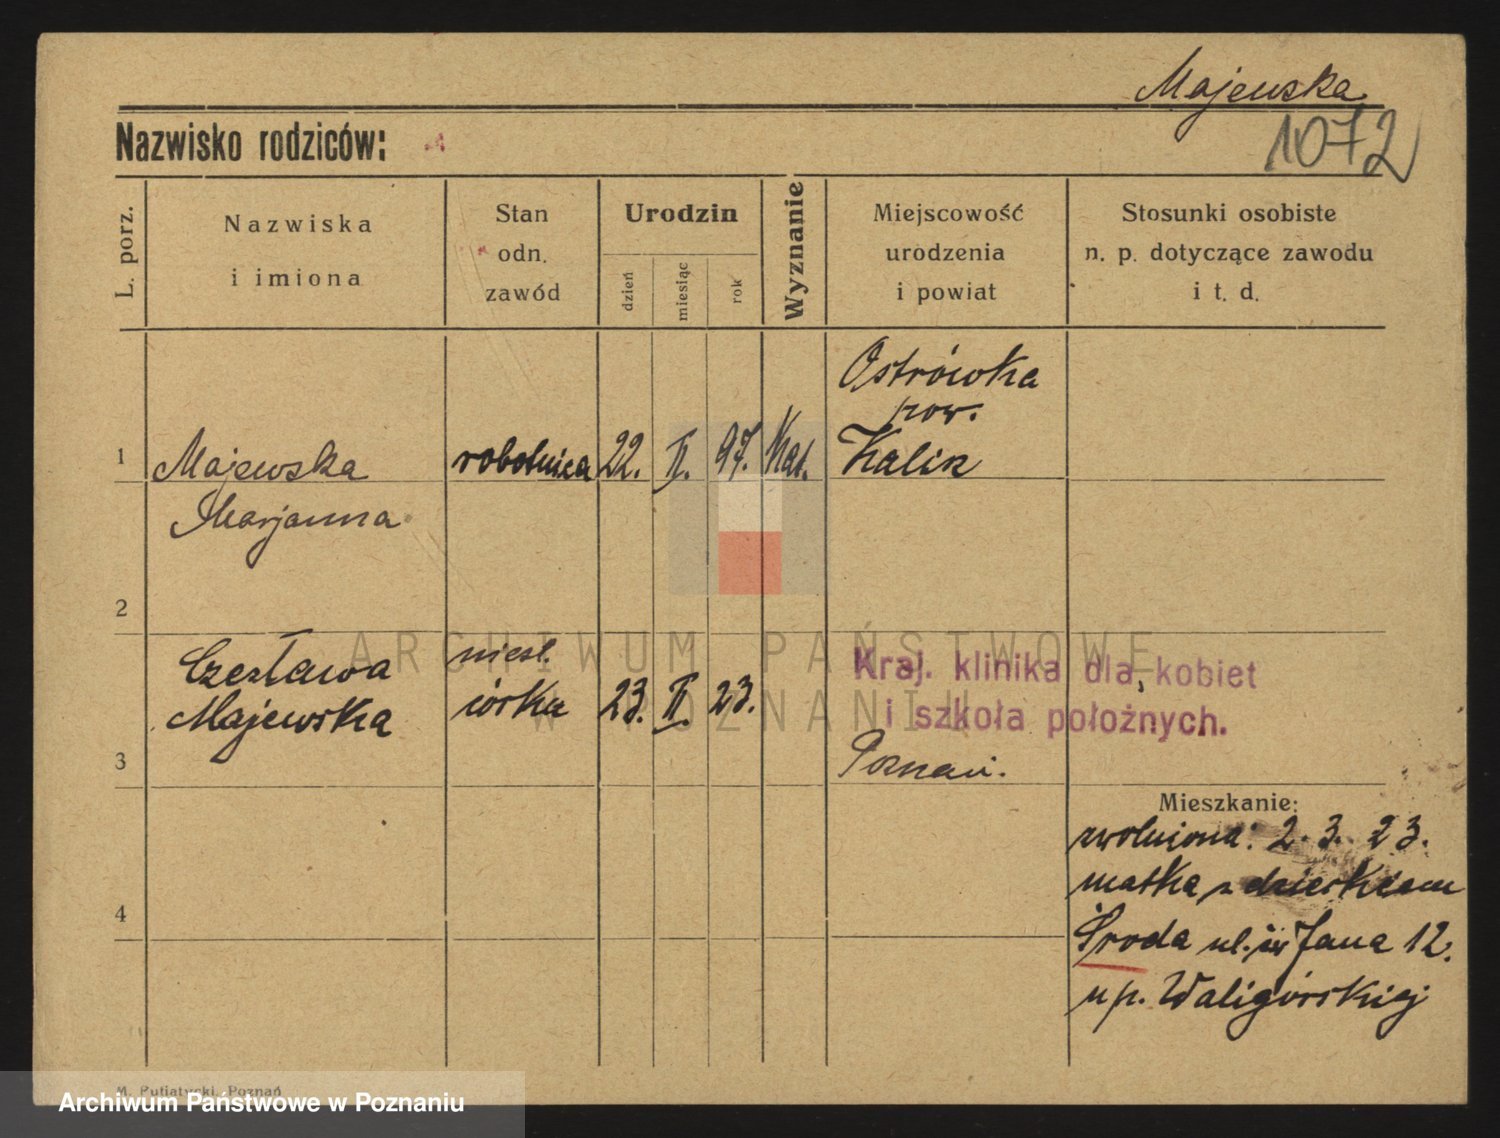 Majewska
1072
Nazwisko rodziców:
L. porz.
Nazwiska
i imiona
Stan
odn.
zawód
Urodzin
dzień
miesiąc
rok
Wyznanie
Miejscowość
urodzenia
i powiat
Stosunki osobiste
n. p. dotyczące zawodu
i t. d.
Ostrówka
pow.
1 Majewska robotnica 22. II. 97. Kat. Kalisz
Marjanna
2
Czesława niesl.
Majewska córka 23. II. 23.
Kraj. klinika dla kobiet
i szkoła położnych.
3 Poznań.
Mieszkanie:
zwolniona: 2. 3. 23.
matka z dzieckiem
4
Środa ul. św Jana 12.
u p. Waligórskiej
ARCHIWUM PAŃSTWOWE
W POZNANIU
M. Putiatycki, Poznań
Archiwum Państwowe w Poznaniu